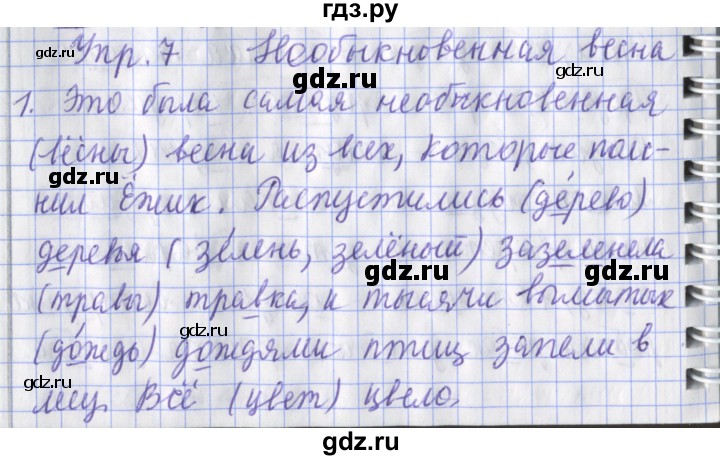 гдз.ру
Упр. 7 Необыкновенная весна
gdz.ru gdz.ru
1. Это была самая необыкновенная
gdz.ru
(вёсны) весна из всех, которые пом-
gdz.ru gdz.ru
нил Ёжик. Распустились (дерево)
деревья (зелень, зелёный) зазеленела
gdz.ru gdz.ru
(травы) травка, и тысячи вымытых
gdz.ru
(дождь) дождями птиц запели в
gdz.ru gdz.ru
лесу. Всё (цвет) цвело.
gdz.ru